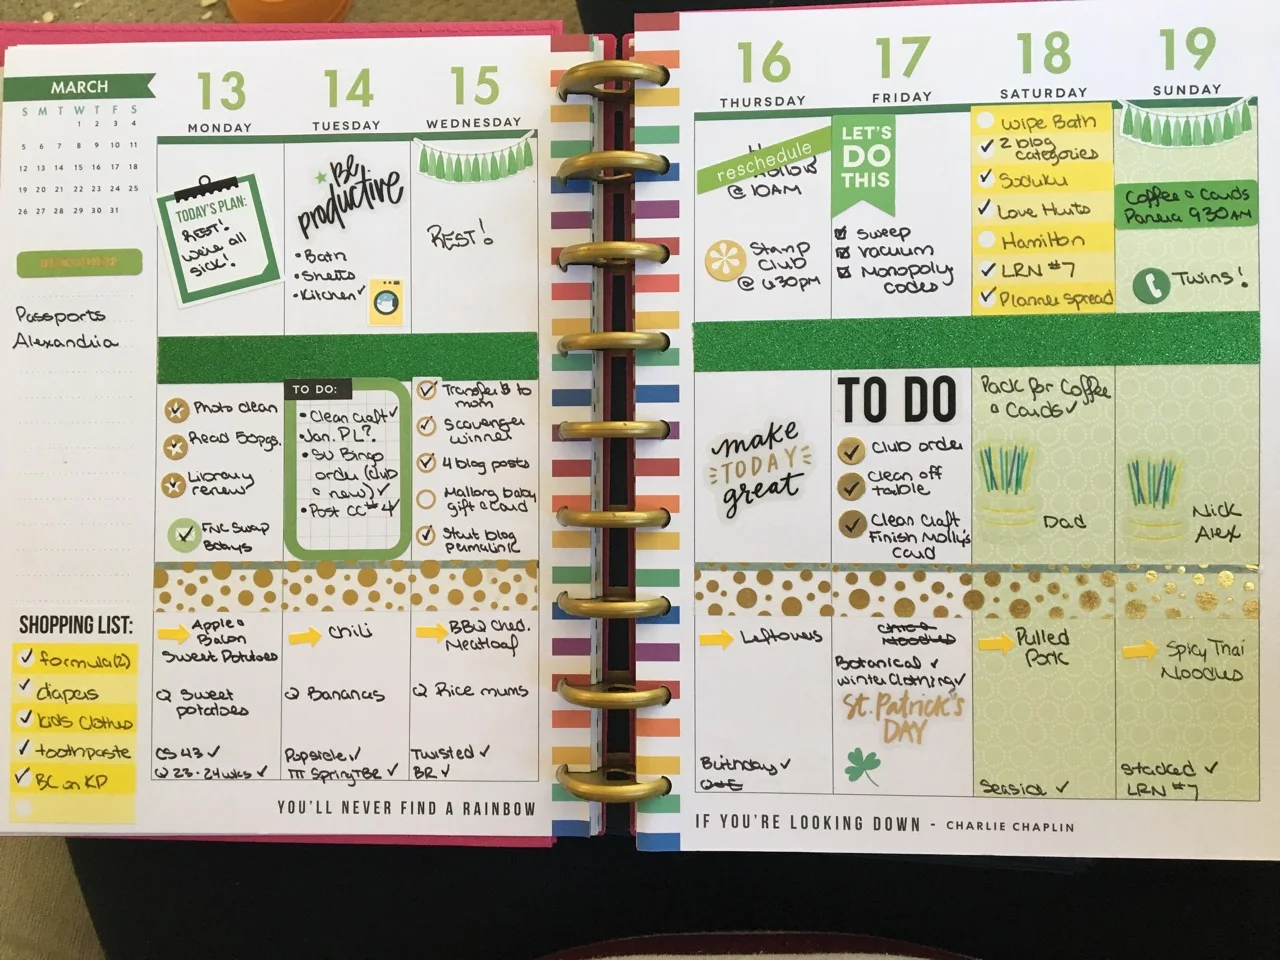 MARCH
S M T W T F S
1 2 3 4
5 6 7 8 9 10 11
12 13 14 15 16 17 18
19 20 21 22 23 24 25
26 27 28 29 30 31
Passports
Alexandria
SHOPPING LIST:
formula(2)
diapers
kids clothes
toothpaste
BC on KP
13
MONDAY
TODAY'S PLAN:
REST!
we're all
sick!
Photo clean
Read 50pgs.
Library
renew
FNC Swap
Babys
Apple &
Bacon
Sweet Potatoes
Q Sweet
potatoes
CS 43 ✓
Q 23-24wks ✓
14
TUESDAY
Be
productive
• Bath
• Sheets
• Kitchen ✓
TO DO:
• Clean craft ✓
• Jan. PL?
• SU Bingo
order (club
& new) ✓
• Post CC #4 ✓
Chili
Q Bananas
Popsicle ✓
TTT SpringTBR ✓
15
WEDNESDAY
REST!
Transfer $ to
mom
Scavenger
winner
4 blog posts
Mallory baby
gift & card
Start blog
permalink
BBQ Ched.
Meatloaf
Q Rice mums
Twisted ✓
BR ✓
YOU'LL NEVER FIND A RAINBOW
16
THURSDAY
reschedule
@ 10AM
Stamp
Club
@ 6:30pm
make
TODAY
great
Leftovers
Birthday ✓
17
FRIDAY
LET'S
DO
THIS
Sweep
Vacuum
Monopoly
codes
TO DO
Club order
Clean off
table
Clean Craft
Finish Molly's
Card
Noodles
Botanical ✓
Winter Clothing ✓
St. Patrick's
DAY
18
SATURDAY
Wipe Bath
2 blog
categories
Soduku
Love Hurts
Hamilton
LRN #7
Planner Spread
Pack for Coffee
& Cards ✓
Dad
Pulled
Pork
Seaside ✓
19
SUNDAY
Coffee & Cards
Panera 9:30AM
Twins!
Nick
Alex
Spicy Thai
Noodles
Stacked ✓
LRN #7
IF YOU'RE LOOKING DOWN - CHARLIE CHAPLIN